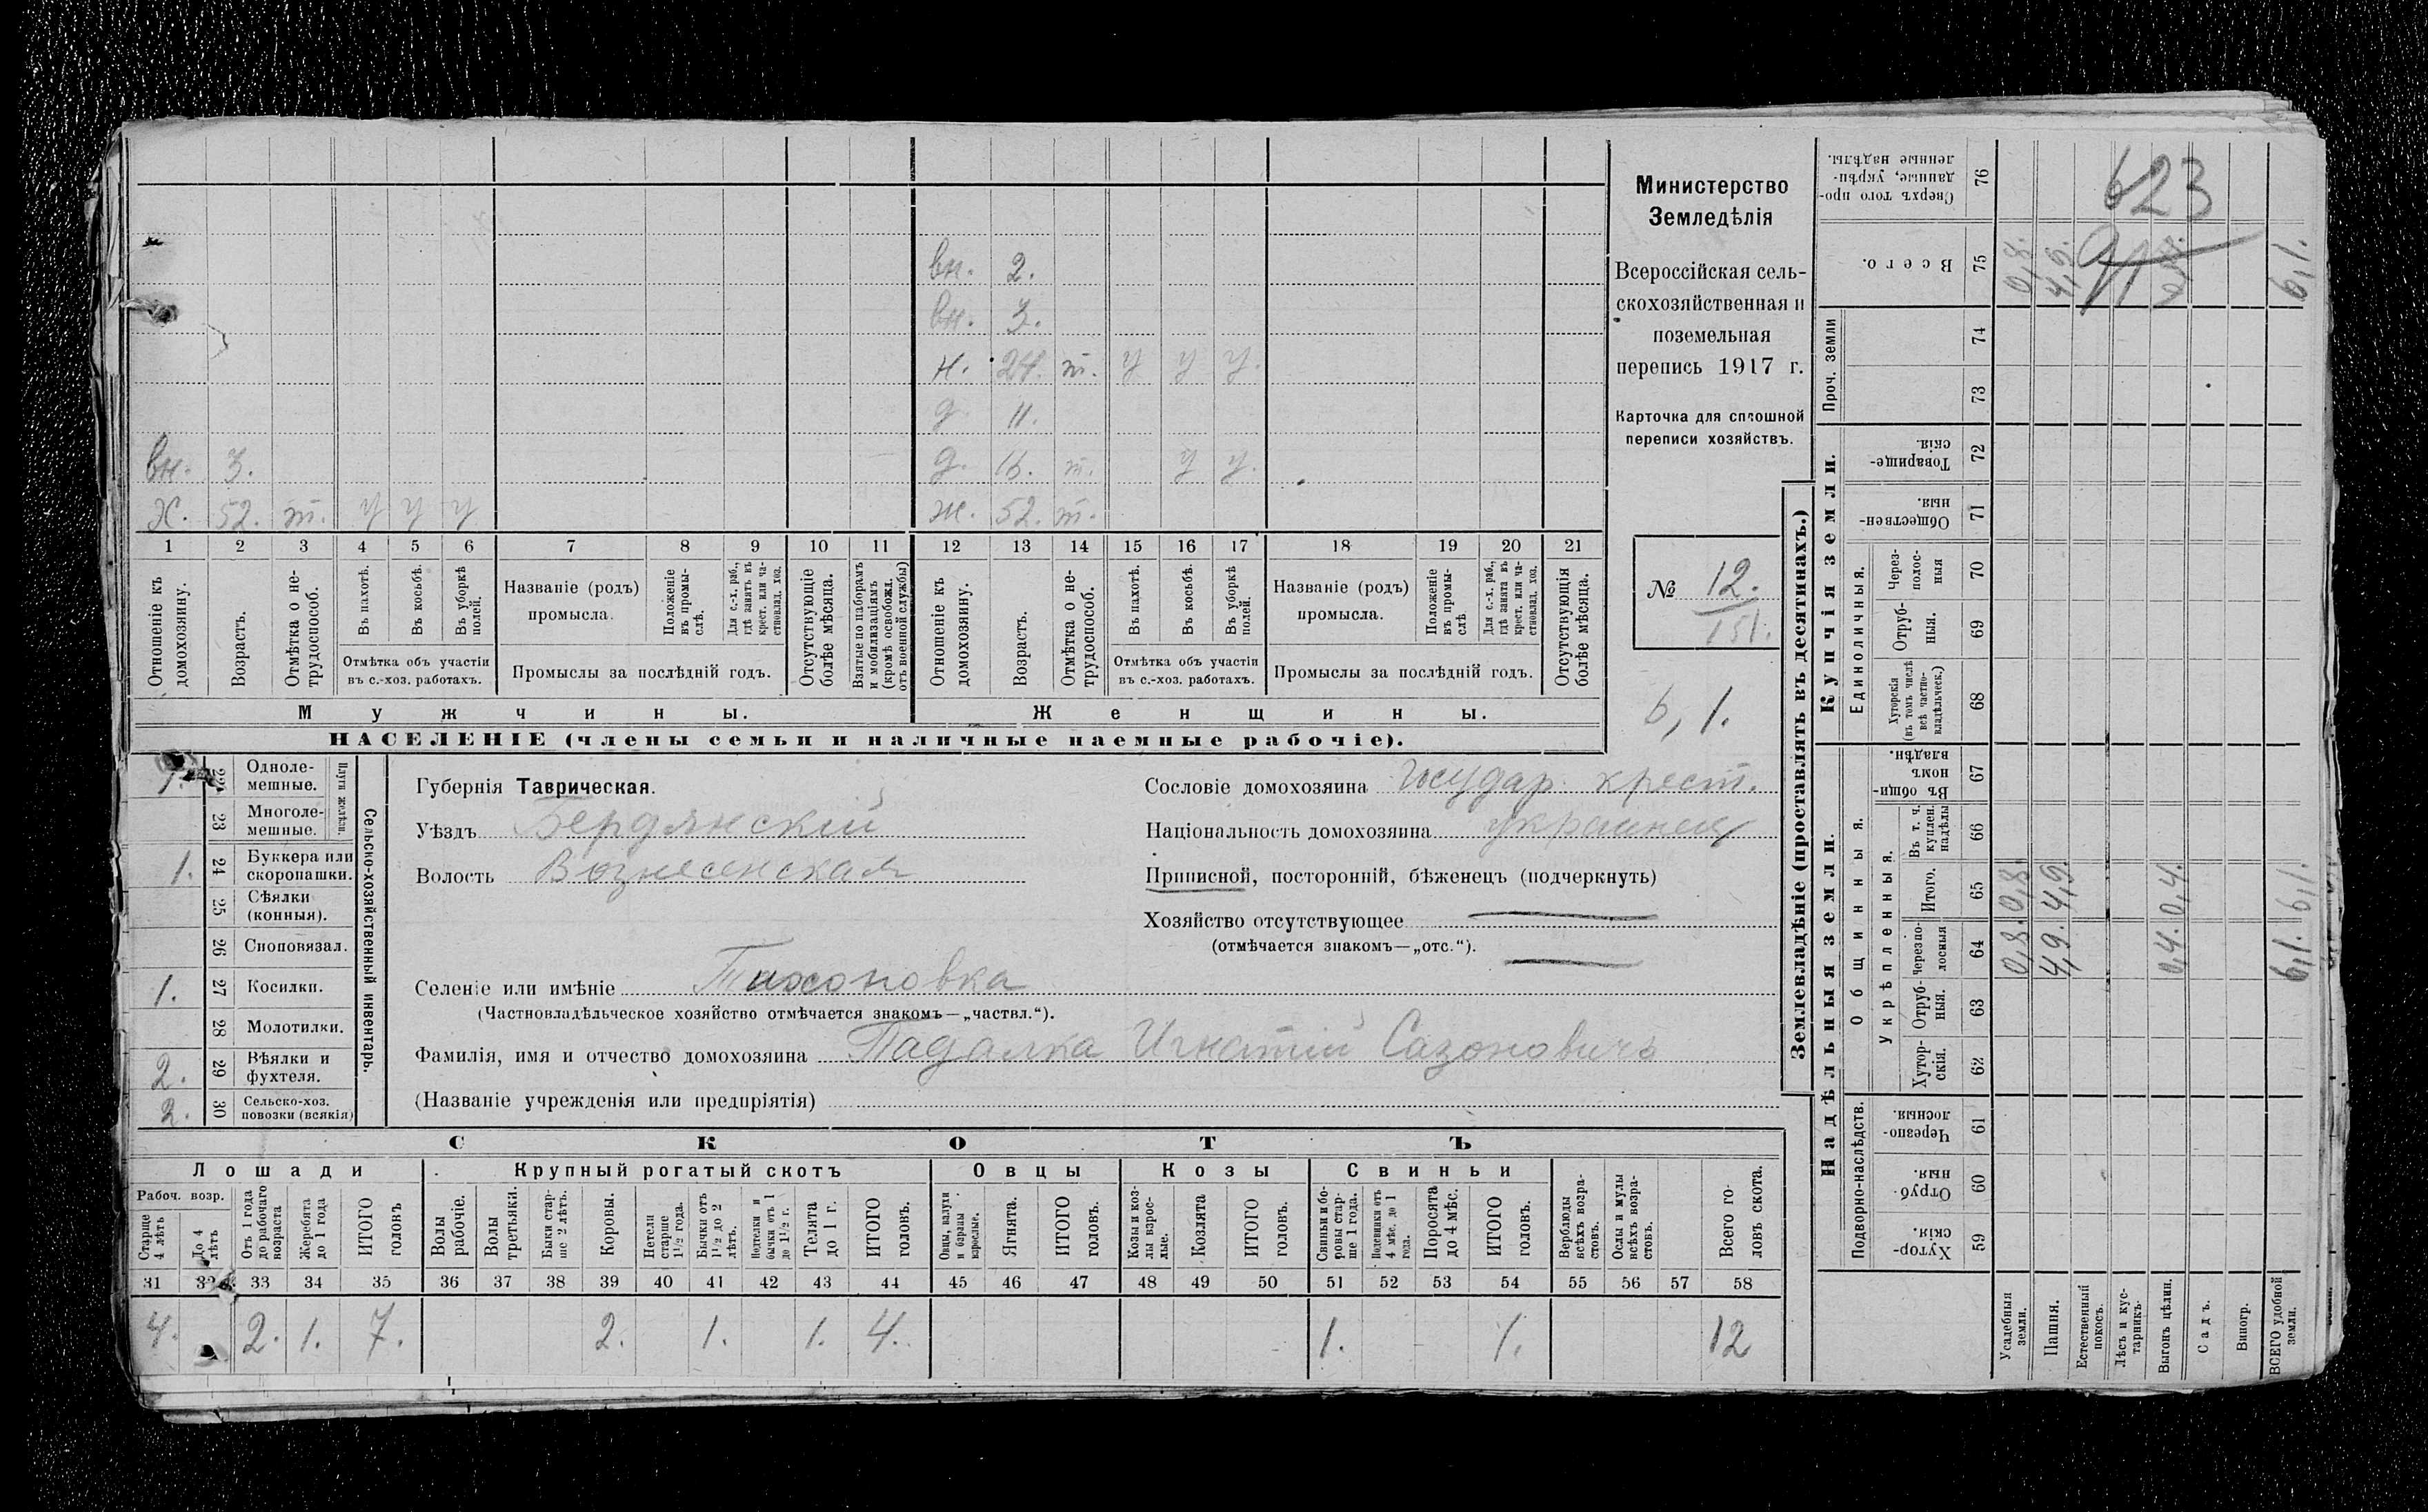 Министерство
Земледѣлія
Всероссійская сель-
скохозяйственная и
поземельная
перепись 1917 г.
Карточка для сплошной
переписи хозяйствъ.
№ 12.
151.
6,1.
вн. 2.
вн. 3.
н. 24. т. у у у.
д. 11.
вн. 3. д. 16. т. у у.
х. 52. т. у у у ж. 52. т.
1 2 3 4 5 6 7 8 9 10 11 12 13 14 15 16 17 18 19 20 21
Отношеніе къ домохозяину.
Возрастъ.
Отмѣтка о не-трудоспособ.
Въ пахотѣ.
Въ косьбѣ.
Въ уборкѣ полей.
Отмѣтка объ участіи
въ с.-хоз. работахъ.
Названіе (родъ)
промысла.
Положеніе въ промы-слѣ.
Для с.-х. раб., гдѣ занятъ въ крест. или ча-стновлад. хоз.
Промыслы за послѣдній годъ.
Отсутствующіе болѣе мѣсяца.
Взятые по наборамъ и мобилизаціямъ (кромѣ освобожд. отъ военной службы)
Отношеніе къ домохозяину.
Возрастъ.
Отмѣтка о не-трудоспособ.
Въ пахотѣ.
Въ косьбѣ.
Въ уборкѣ полей.
Отмѣтка объ участіи
въ с.-хоз. работахъ.
Названіе (родъ)
промысла.
Положеніе въ промы-слѣ
Для с.-х. раб., гдѣ занята въ крест. или ча-стновлад. хоз.
Промыслы за послѣдній годъ.
Отсутствующія болѣе мѣсяца.
Мужчины. Женщины.
НАСЕЛЕНІЕ (члены семьи и наличные наемные рабочіе).
Сельско-хозяйственный инвентарь.
Плуги желѣзн.
1. 22 Одноле-мешные.
23 Многоле-мешные.
1. 24 Буккера или скоропашки.
25 Сѣялки (конныя).
26 Сноповязал.
1. 27 Косилки.
28 Молотилки.
2. 29 Вѣялки и фухтеля.
2. 30 Сельско-хоз. повозки (всякія)
Губернія Таврическая.
Уѣздъ Бердянскій
Волость Вознесенская
Селеніе или имѣніе Тихоновка
(Частновладѣльческое хозяйство отмѣчается знакомъ—„частвл.“).
Фамилія, имя и отчество домохозяина Падалка Игнатій Сазоновичъ
(Названіе учрежденія или предпріятія)
Сословіе домохозяина государ. крест.
Національность домохозяина украинец
Приписной, посторонній, бѣженецъ (подчеркнуть)
Хозяйство отсутствующее
(отмѣчается знакомъ—„отс.“).
СКОТЪ
Лошади Крупный рогатый скотъ Овцы Козы Свиньи
Рабоч. возр.
Старше 4 лѣтъ
До 4 лѣтъ
Отъ 1 года до рабочаго возраста
Жеребята до 1 года
ИТОГО головъ
Волы рабочіе.
Волы третьяки.
Быки стар-ше 2 лѣтъ.
Коровы.
Нетели старше 1½ года.
Бычки отъ 1½ до 2 лѣтъ.
Подтелки и бычки отъ 1 до 1½ г.
Телята до 1 г.
ИТОГО головъ.
Овцы, валухи и бараны взрослые.
Ягнята.
ИТОГО головъ.
Козы и коз-лы взрос-лые.
Козлята
ИТОГО головъ.
Свиньи и бо-ровы стар-ше 1 года.
Подсвинки отъ 4 мѣс. до 1 года.
Поросята до 4 мѣс.
ИТОГО головъ.
Верблюды всѣхъ возра-стовъ.
Ослы и мулы всѣхъ возра-стовъ.
Всего го-ловъ скота.
31 32 33 34 35 36 37 38 39 40 41 42 43 44 45 46 47 48 49 50 51 52 53 54 55 56 57 58
4. 2. 1. 7. 2. 1. 1. 4. 1. 1. 12
Землевладѣніе (проставлять въ десятинахъ.)
Надѣльныя земли. Купчія земли.
Подворно-наслѣдств.
Общинныя.
Укрѣпленныя.
Единоличныя.
Проч. земли
59 Хутор-скія.
60 Отруб-ныя.
61 Черезпо-лосныя.
62 Хутор-скія.
63 Отруб-ныя.
64 Черезпо-лосныя
65 Итого.
66 Въ т. ч. куплен. надѣлы
67 Въ общи-номъ владѣн.
68 Хуторскія (въ томъ числѣ всѣ частно-владѣльческ.)
69 Отруб-ныя.
70 Через-полос-ныя
71 Обществен-ныя.
72 Товарище-скія.
73
74
75 Всего.
76 Сверхъ того про-данные, укрѣп-ленные надѣлы.
Усадебныя земли. 0,8. 0,8. 0,8.
Пашня. 4,9. 4,9. 4,9.
Естественный покосъ.
Лѣсъ и кус-тарникъ.
Выгонъ цѣлин. 0,4. 0,4.
Садъ.
Виногр.
ВСЕГО удобной земли. 6,1. 6,1. 6,1.
623